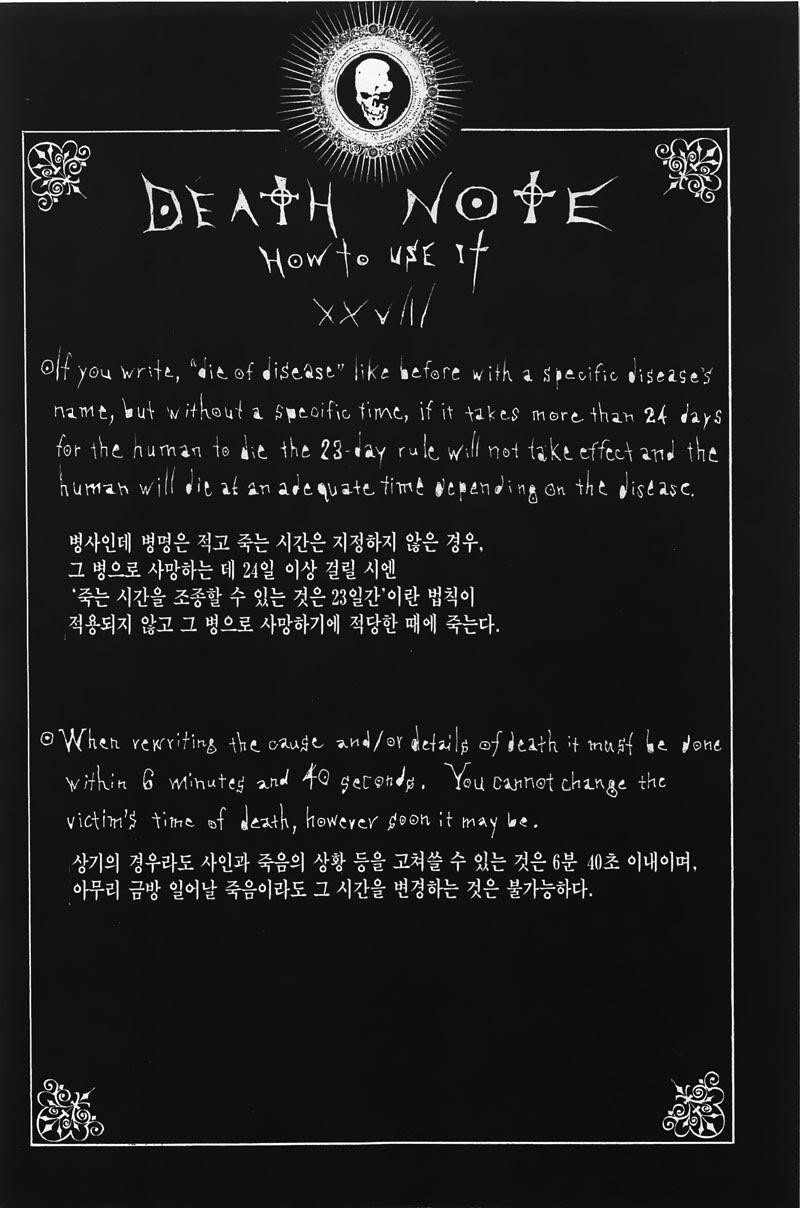 DEATH NOTE
HOW to USE It
XXVIII
If you write, "die of disease" like before with a specific disease's
name, but without a specific time, if it takes more than 24 days
for the human to die the 23-day rule will not take effect and the
human will die at an adequate time depending on the disease.
병사인데 병명은 적고 죽는 시간은 지정하지 않은 경우,
그 병으로 사망하는 데 24일 이상 걸릴 시엔
'죽는 시간을 조종할 수 있는 것은 23일간'이란 법칙이
적용되지 않고 그 병으로 사망하기에 적당한 때에 죽는다.
When rewriting the cause and/or details of death it must be done
within 6 minutes and 40 seconds. You cannot change the
victim's time of death, however soon it may be.
상기의 경우라도 사인과 죽음의 상황 등을 고쳐쓸 수 있는 것은 6분 40초 이내이며,
아무리 금방 일어날 죽음이라도 그 시간을 변경하는 것은 불가능하다.